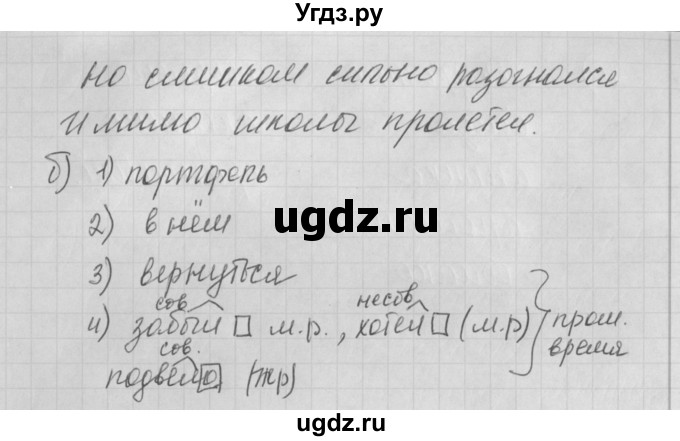 Угдз.ру
но слишком сильно разогнался
И мимо школы пролетел.
б) 1) портфель
2) в нём
3) вернуться
сов. несов.
4) забыл м.р., хотел (м.р) прош. время
сов.
подвело (жр)
ugdz.ru
ugdz.ru